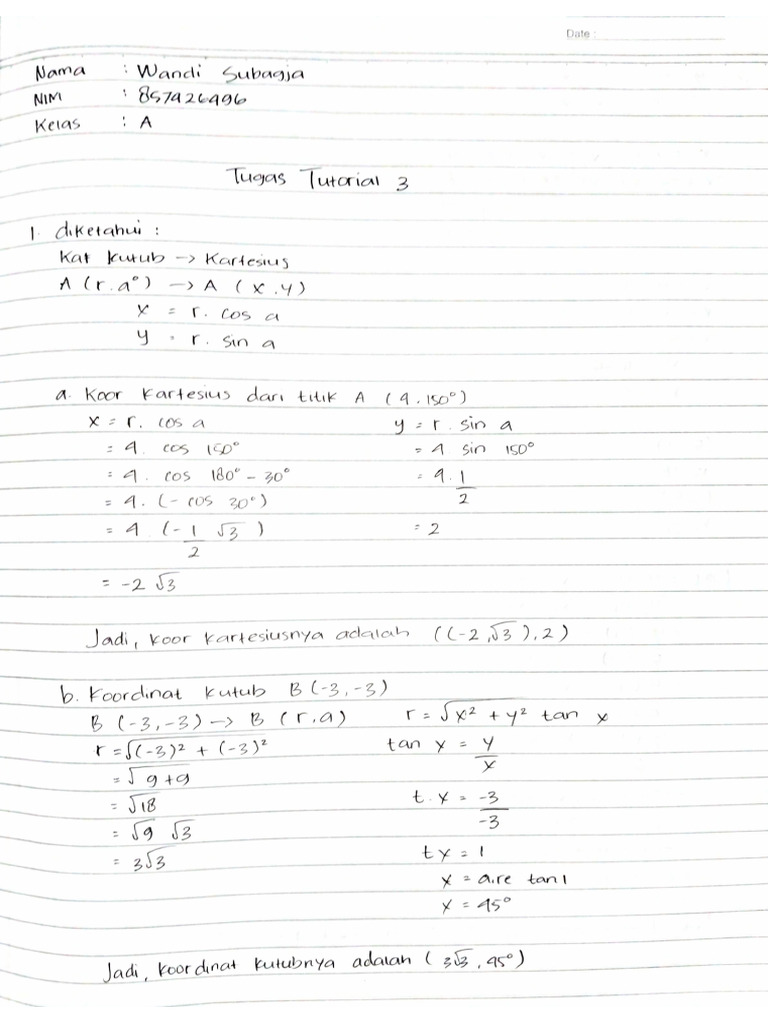 Date :
Nama : Wandi Subagja
NIM : 857426496
Kelas : A
Tugas Tutorial 3
1. diketahui :
Kat kutub -> Kartesius
A (r.a°) -> A (x.y)
x = r. cos a
y = r. sin a
a. Koor Kartesius dari titik A (4.150°)
x = r. cos a y = r. sin a
= 4. cos 150° = 4 sin 150°
= 4. cos 180° - 30° = 4. 1/2
= 4. (- cos 30°)
= 4 (- 1/2 √3 ) = 2
= -2 √3
Jadi, koor kartesiusnya adalah ((-2,√3),2)
b. Koordinat kutub B (-3,-3)
B (-3,-3) -> B (r.a) r = √x² + y² tan x
r = √(-3)² + (-3)² tan x = y/x
= √9+9
= √18 t. x = -3/-3
= √9 √3
= 3√3 t x = 1
x = a.re tan 1
x = 45°
Jadi, koordinat kutubnya adalah (3√3, 45°)